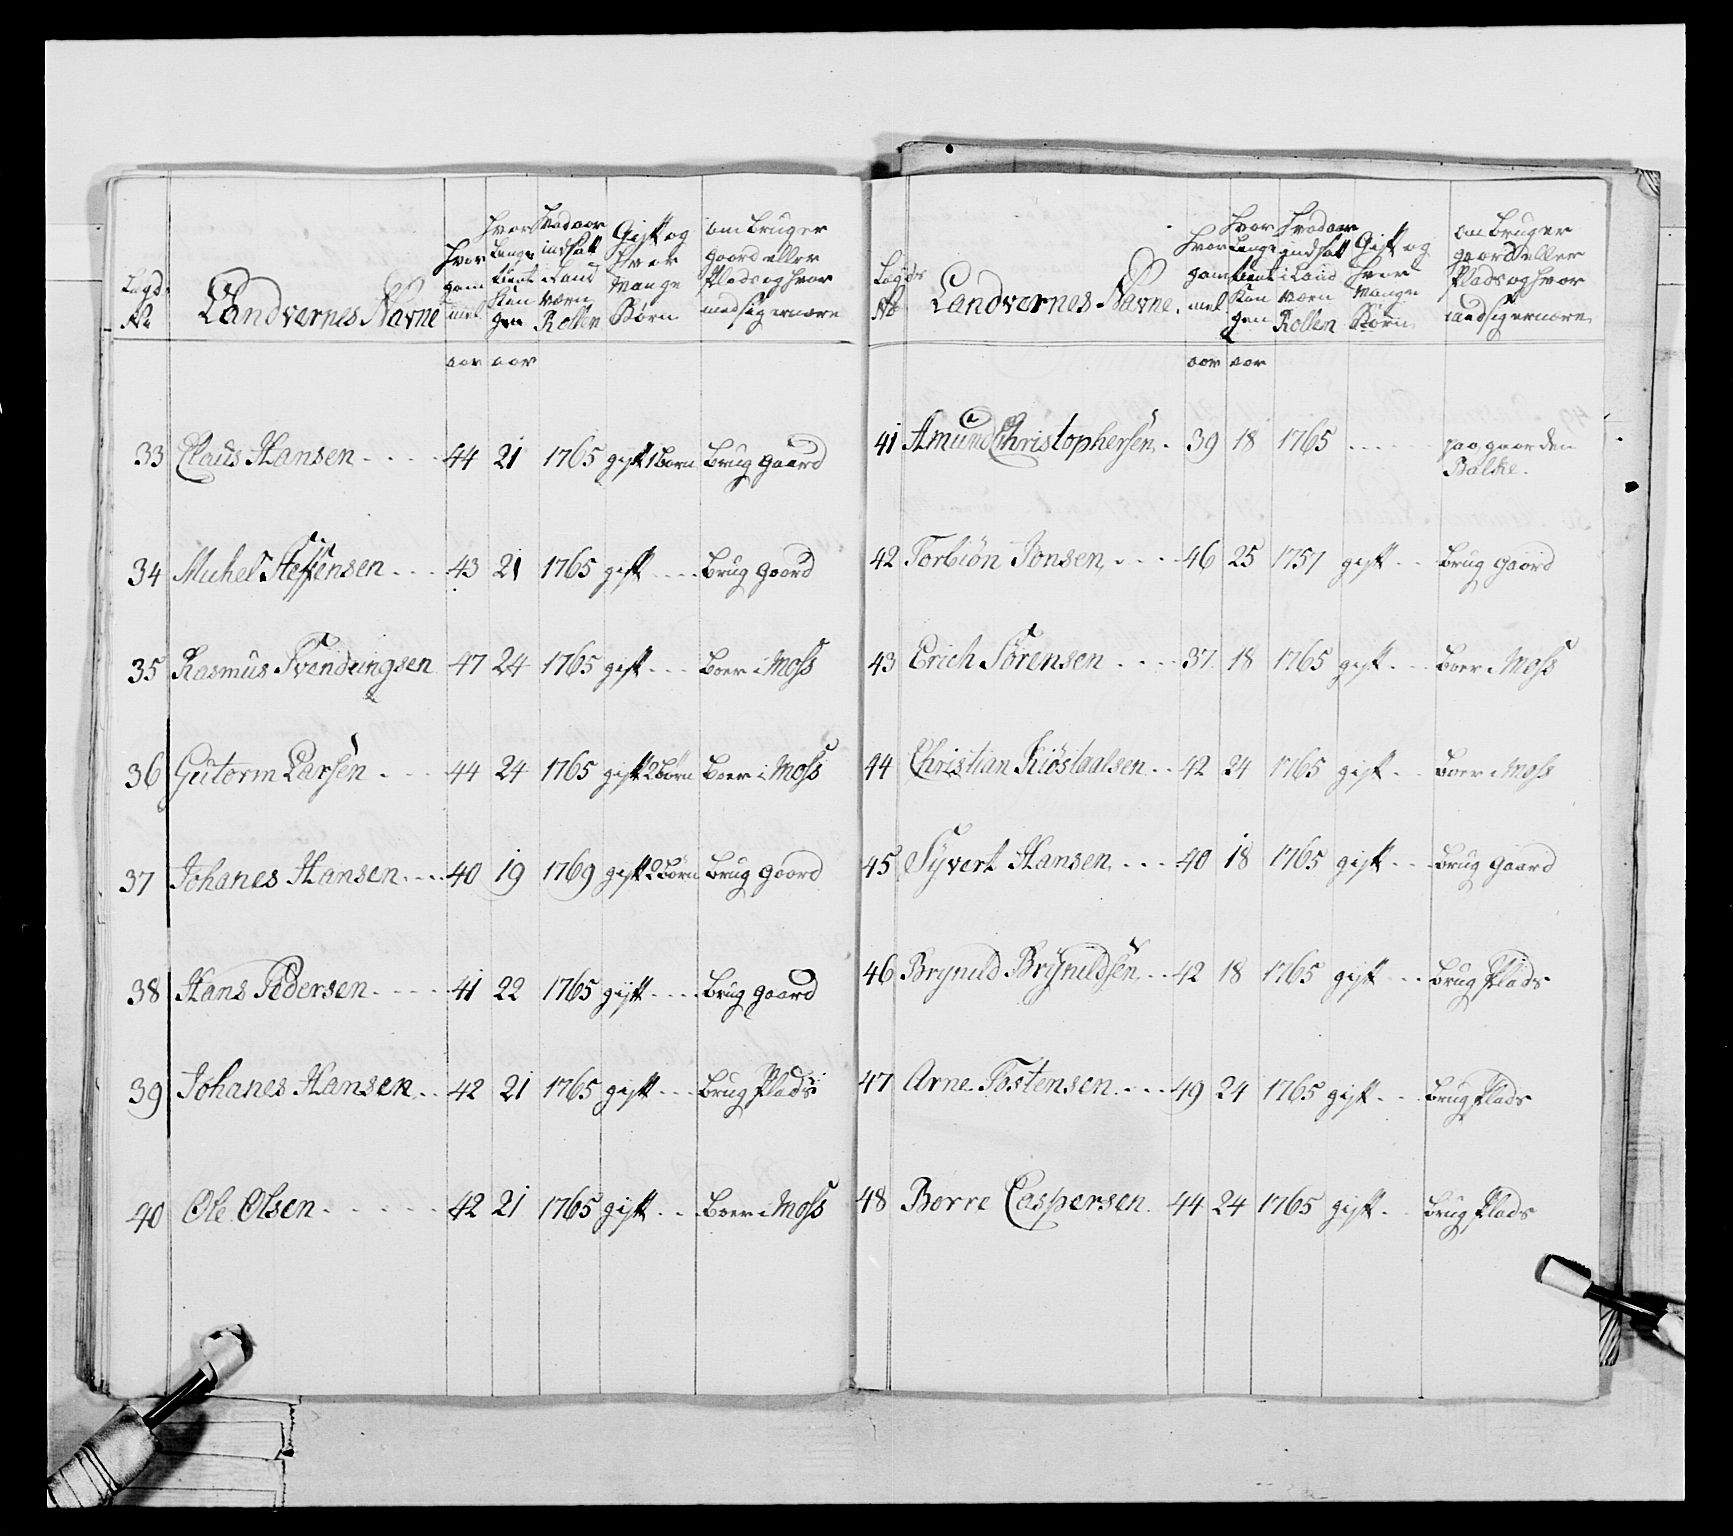 Lægds No
Landvernes Navne
Hvor gammel
Hvor Lenge tient Kongen
Hvad aar indsatt i Land værn Rollen
Gift og Hvor Mange Børn
om bruger gaard eller Plads og hvor med sig ernære
aar aar
33 Claus Hansen 44 21 1765 gift 1 Børn Brug gaard
34 Michel Steffensen 43 21 1765 gift Brug gaard
35 Rasmus Svendungsen 47 24 1765 gift Boer i Moss
36 Gutorm Larsen 44 24 1765 gift 2 Børn Boer i Moss
37 Johanes Hansen 40 19 1769 gift 2 Børn Brug gaard
38 Hans Pedersen 41 22 1765 gift Brug gaard
39 Johanes Hansen 42 21 1765 gift Brug Plads
40 Ole Olsen 42 21 1765 gift Boer i Moss
Lægds No
Landvernes Navne.
Hvor gammel
Hvor Lenge tient Kongen
Hvad aar indsatt i Land Værn Rollen
Gift og Hvor Mange Børn
om bruger gaard eller Plads og hvor med sig ernære
aar aar
41 Amund Christophersen 39 18 1765 paa gaarden
Balke.
42 Torbiön Jonsen 46 25 1757 gift Brug gaard
43 Erich Sörensen 37 18 1765 gift Boer i Moss
44 Christian Kiöstaalsen 42 24 1765 gift Boer i Moss
45 Syvert Hansen 40 18 1765 gift Brug gaard
46 Brynild Brynildsen 42 18 1765 gift Brug Plads
47 Arne Tostensen 49 24 1765 gift Brug Plads
48 Borre Caspersen 44 24 1765 gift Brug Plads